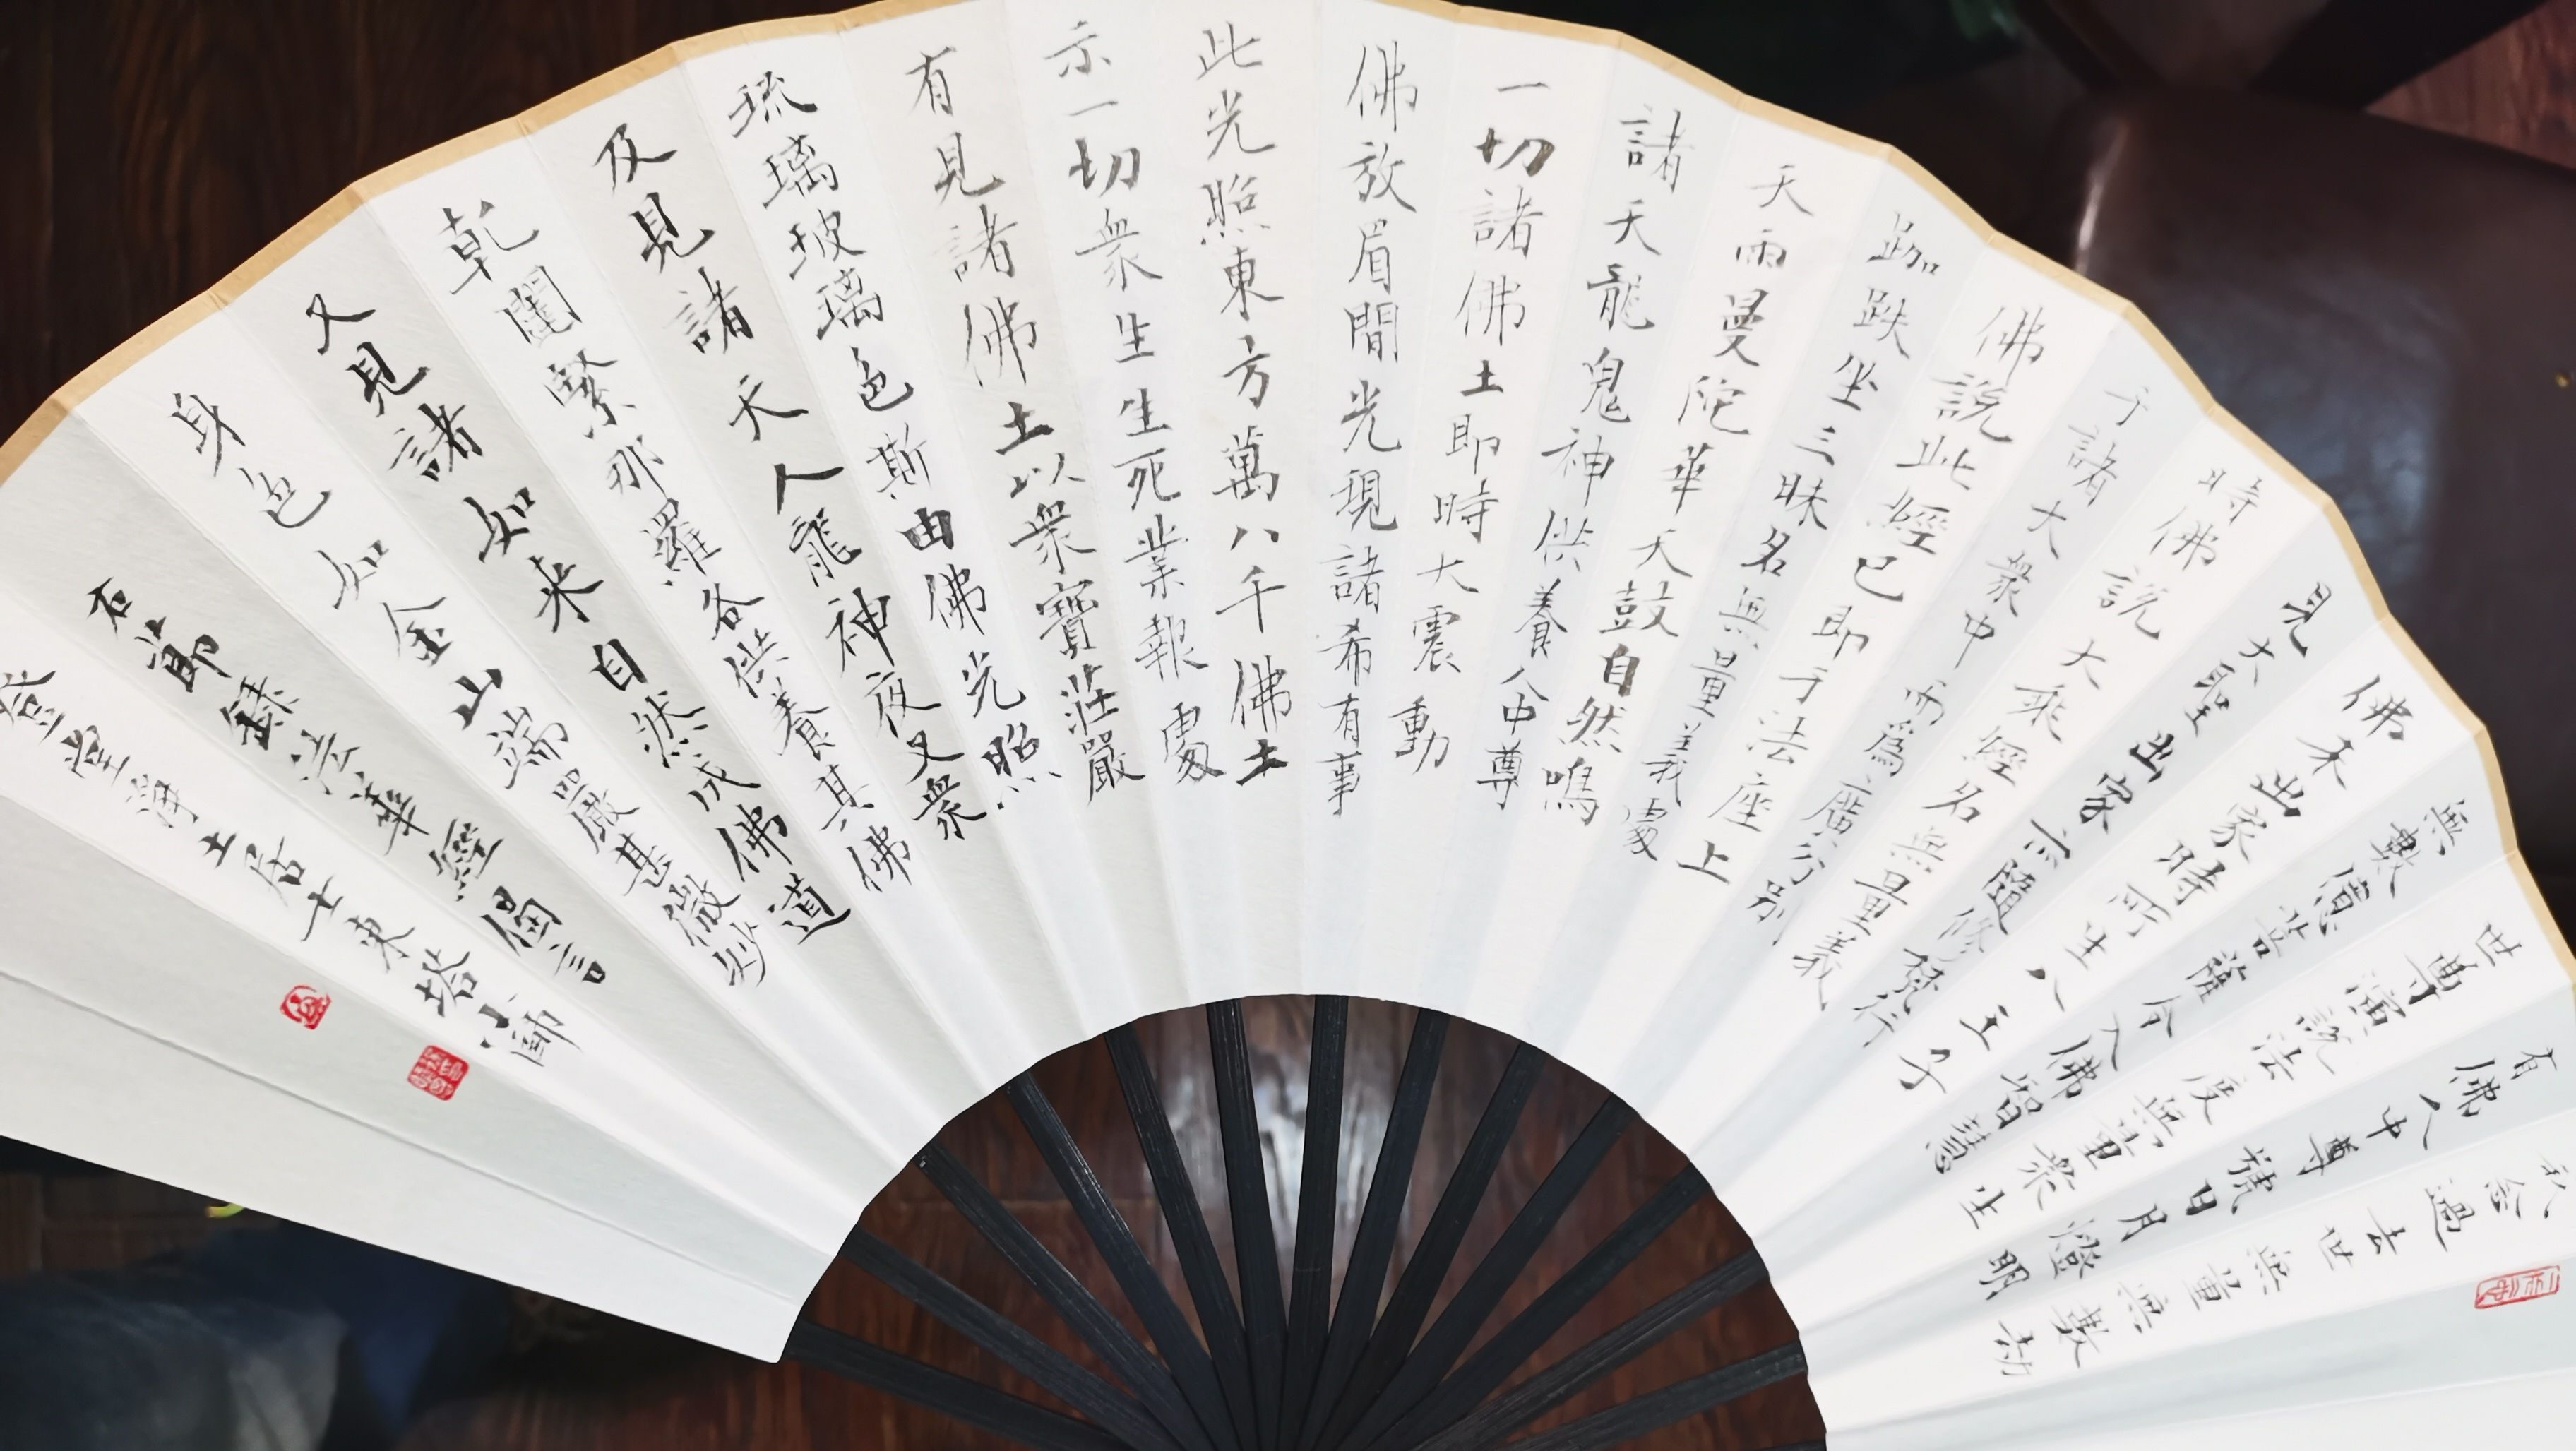 我念過去世無量無數劫
有佛人中尊號日月燈明
世尊演說法度無量衆生
無數億菩薩令入佛智慧
佛未出家時所生八王子
見大聖出家亦隨修梵行
時佛說大乘經名無量義
于諸大衆中而為廣分別
佛說此經已即于法座上
跏趺坐三昧名無量義處
天雨曼陀華天鼓自然鳴
諸天龍鬼神供養人中尊
一切諸佛土即時大震動
佛放眉間光現諸希有事
此光照東方萬八千佛土
示一切衆生生死業報處
有見諸佛土以衆寶莊嚴
琉璃玻璃色斯由佛光照
及見諸天人龍神夜叉衆
乾闥緊那羅各供養其佛
又見諸如来自然成佛道
身色如金山端嚴甚微妙
右節錄法華經偈言
淨土居士東塔